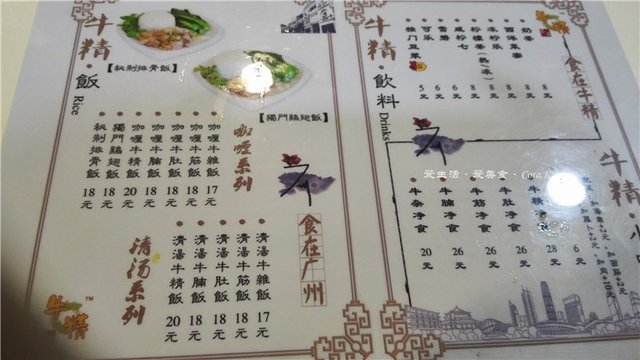 牛精·飯
Rice
【秘制排骨飯】
【獨門雞翅飯】
咖喱系列
咖喱牛雜飯 17元
咖喱牛筋飯 18元
咖喱牛肚飯 18元
咖喱牛腩飯 18元
咖喱牛精飯 20元
獨門雞翅飯 18元
秘制排骨飯 18元
食在广州
清汤系列
清湯牛雜飯 17元
清湯牛筋飯 18元
清湯牛肚飯 18元
清湯牛腩飯 18元
清湯牛精飯 20元
牛精™
牛精·飲料
Drinks
食在牛精
奶茶 8元
西洋菜蜜 8元
冻柠乐
柠檬茶(熱/凍)
咸柠七
雪碧 6元
可乐 6元
独门豆浆 5元
爱生活·爱美食·Cora.
牛精
牛精净食 28元
牛肚净食 26元
牛筋净食 26元
牛腩净食 26元
牛杂净食 20元
6元